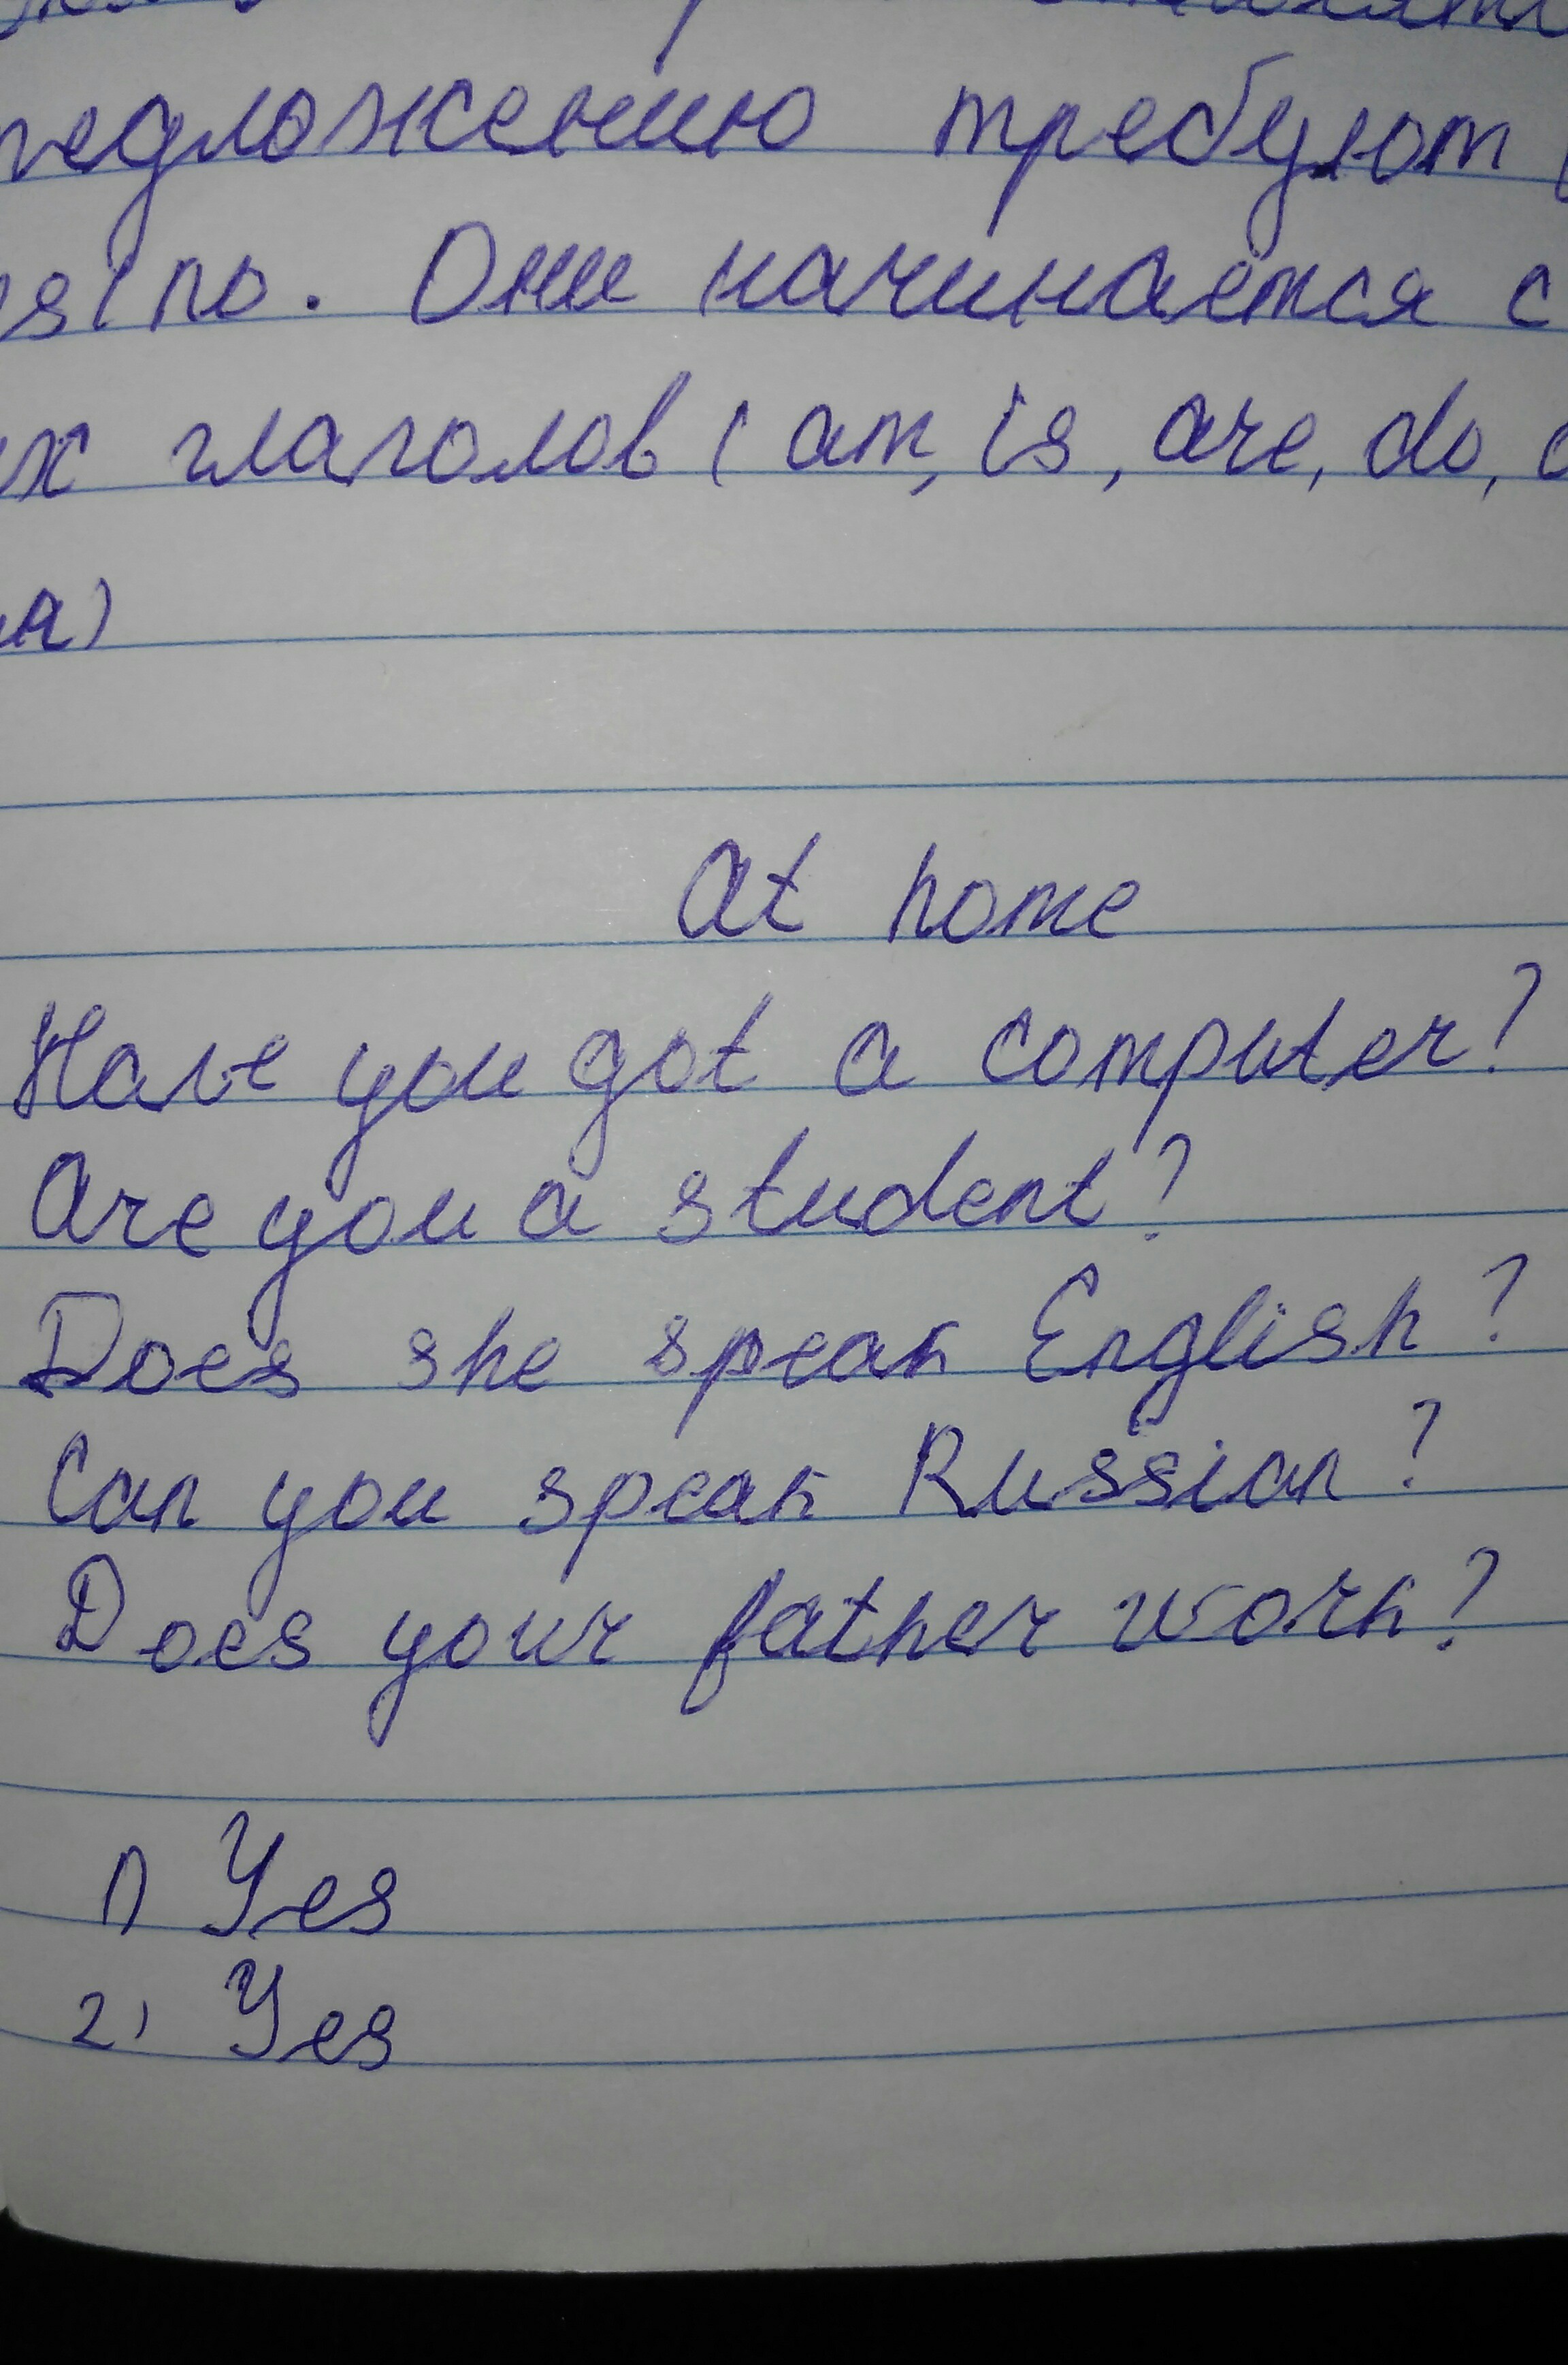 редложению требуют
es/no. Они начинается с
х глаголов (am, is, are, do,
я)
At home
Have you got a computer?
Are you a student?
Does she speak English?
Can you speak Russian?
Does your father work?
1) Yes
2) Yes